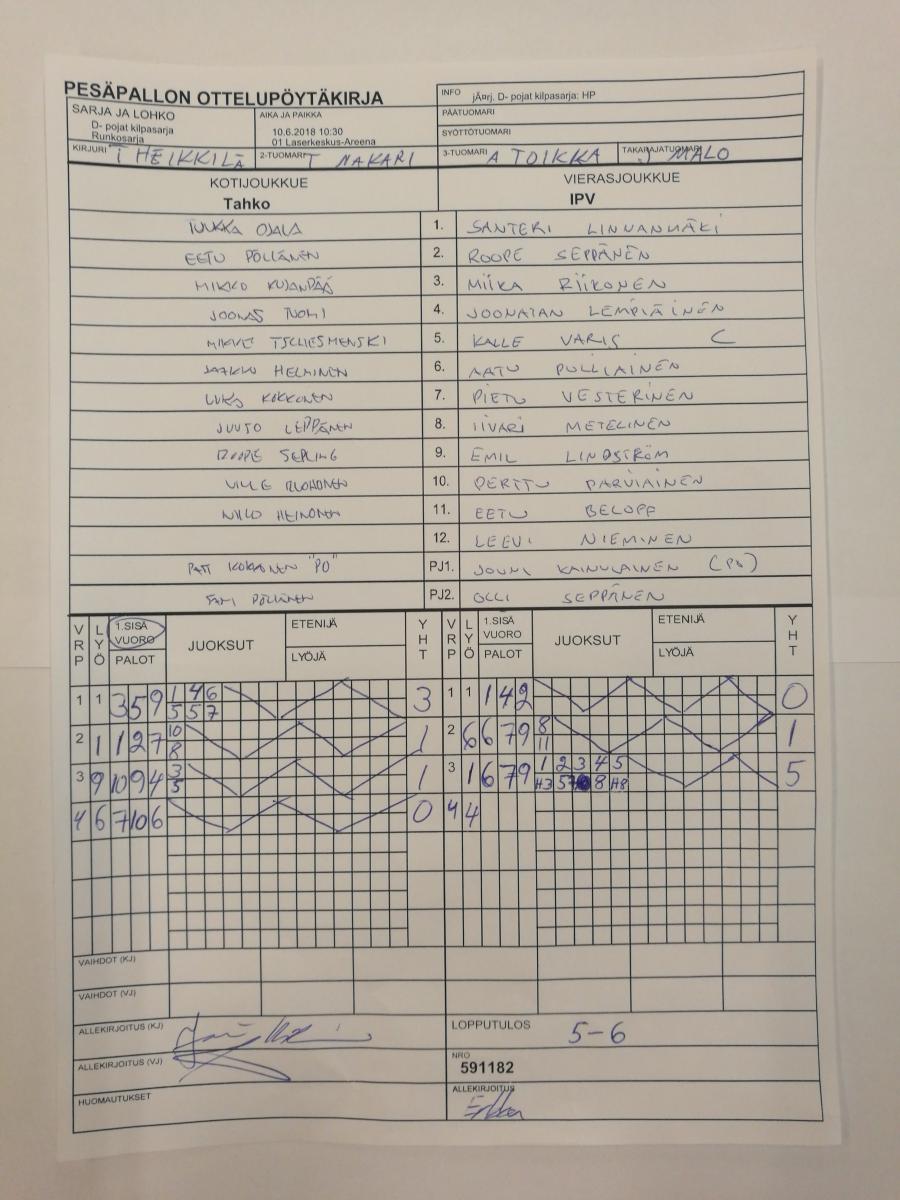 PESÄPALLON OTTELUPÖYTÄKIRJA
INFO jÄ¤rj. D- pojat kilpasarja: HP
PÄÄTUOMARI
SYÖTTÖTUOMARI
SARJA JA LOHKO
D- pojat kilpasarja
Runkosarja
AIKA JA PAIKKA
10.6.2018 10:30
01 Laserkeskus-Areena
KIRJURI T HEIKKILÄ 2-TUOMARI T NAKARI 3-TUOMARI A TOIKKA TAKARAJATUOMARI J MALO
KOTIJOUKKUE VIERASJOUKKUE
Tahko IPV
TUUKKA OJALA 1. SANTERI LINNANMÄKI
EETU PÖLLÄNEN 2. ROOPE SEPPÄNEN
MIKKO KUJANPÄÄ 3. MIIKA RIIKONEN
JOONAS TUOMI 4. JOONATAN LEMPIÄINEN
5. KALLE VARIS C
JAAKKO HELMINEN 6. AATU PULLIAINEN
KOKKONEN 7. PIETU VESTERINEN
JUUSO LEPPÄNEN 8. IIVARI METELINEN
ROOPE SERLING 9. EMIL LINDSTRÖM
VILLE 10. PERTTU PARVIAINEN
NIILO HEINONEN 11. EETU BELOFF
12. LEEVI NIEMINEN
KOKKONEN "PO" PJ1. JOUNI KAINULAINEN (PO)
SAMI PÖLLÄNEN PJ2. OLLI SEPPÄNEN
VRP LYÖ 1.SISÄ VUORO PALOT JUOKSUT ETENIJÄ LYÖJÄ YHT VRP LYÖ 1.SISÄ VUORO PALOT JUOKSUT ETENIJÄ LYÖJÄ YHT
1 1 3 5 9 1 4 6 3 1 1 1 4 2 0
5 5 7
2 1 1 2 7 10 1 2 6 6 7 9 8 1
8 11
3 9 10 9 4 3 1 3 1 6 7 9 1 2 3 4 5 5
5 H3 5 8 H8
4 6 7 10 6 0 4 4
VAIHDOT (KJ)
VAIHDOT (VJ)
ALLEKIRJOITUS (KJ) LOPPUTULOS 5-6
ALLEKIRJOITUS (VJ) NRO
591182
HUOMAUTUKSET ALLEKIRJOITUS